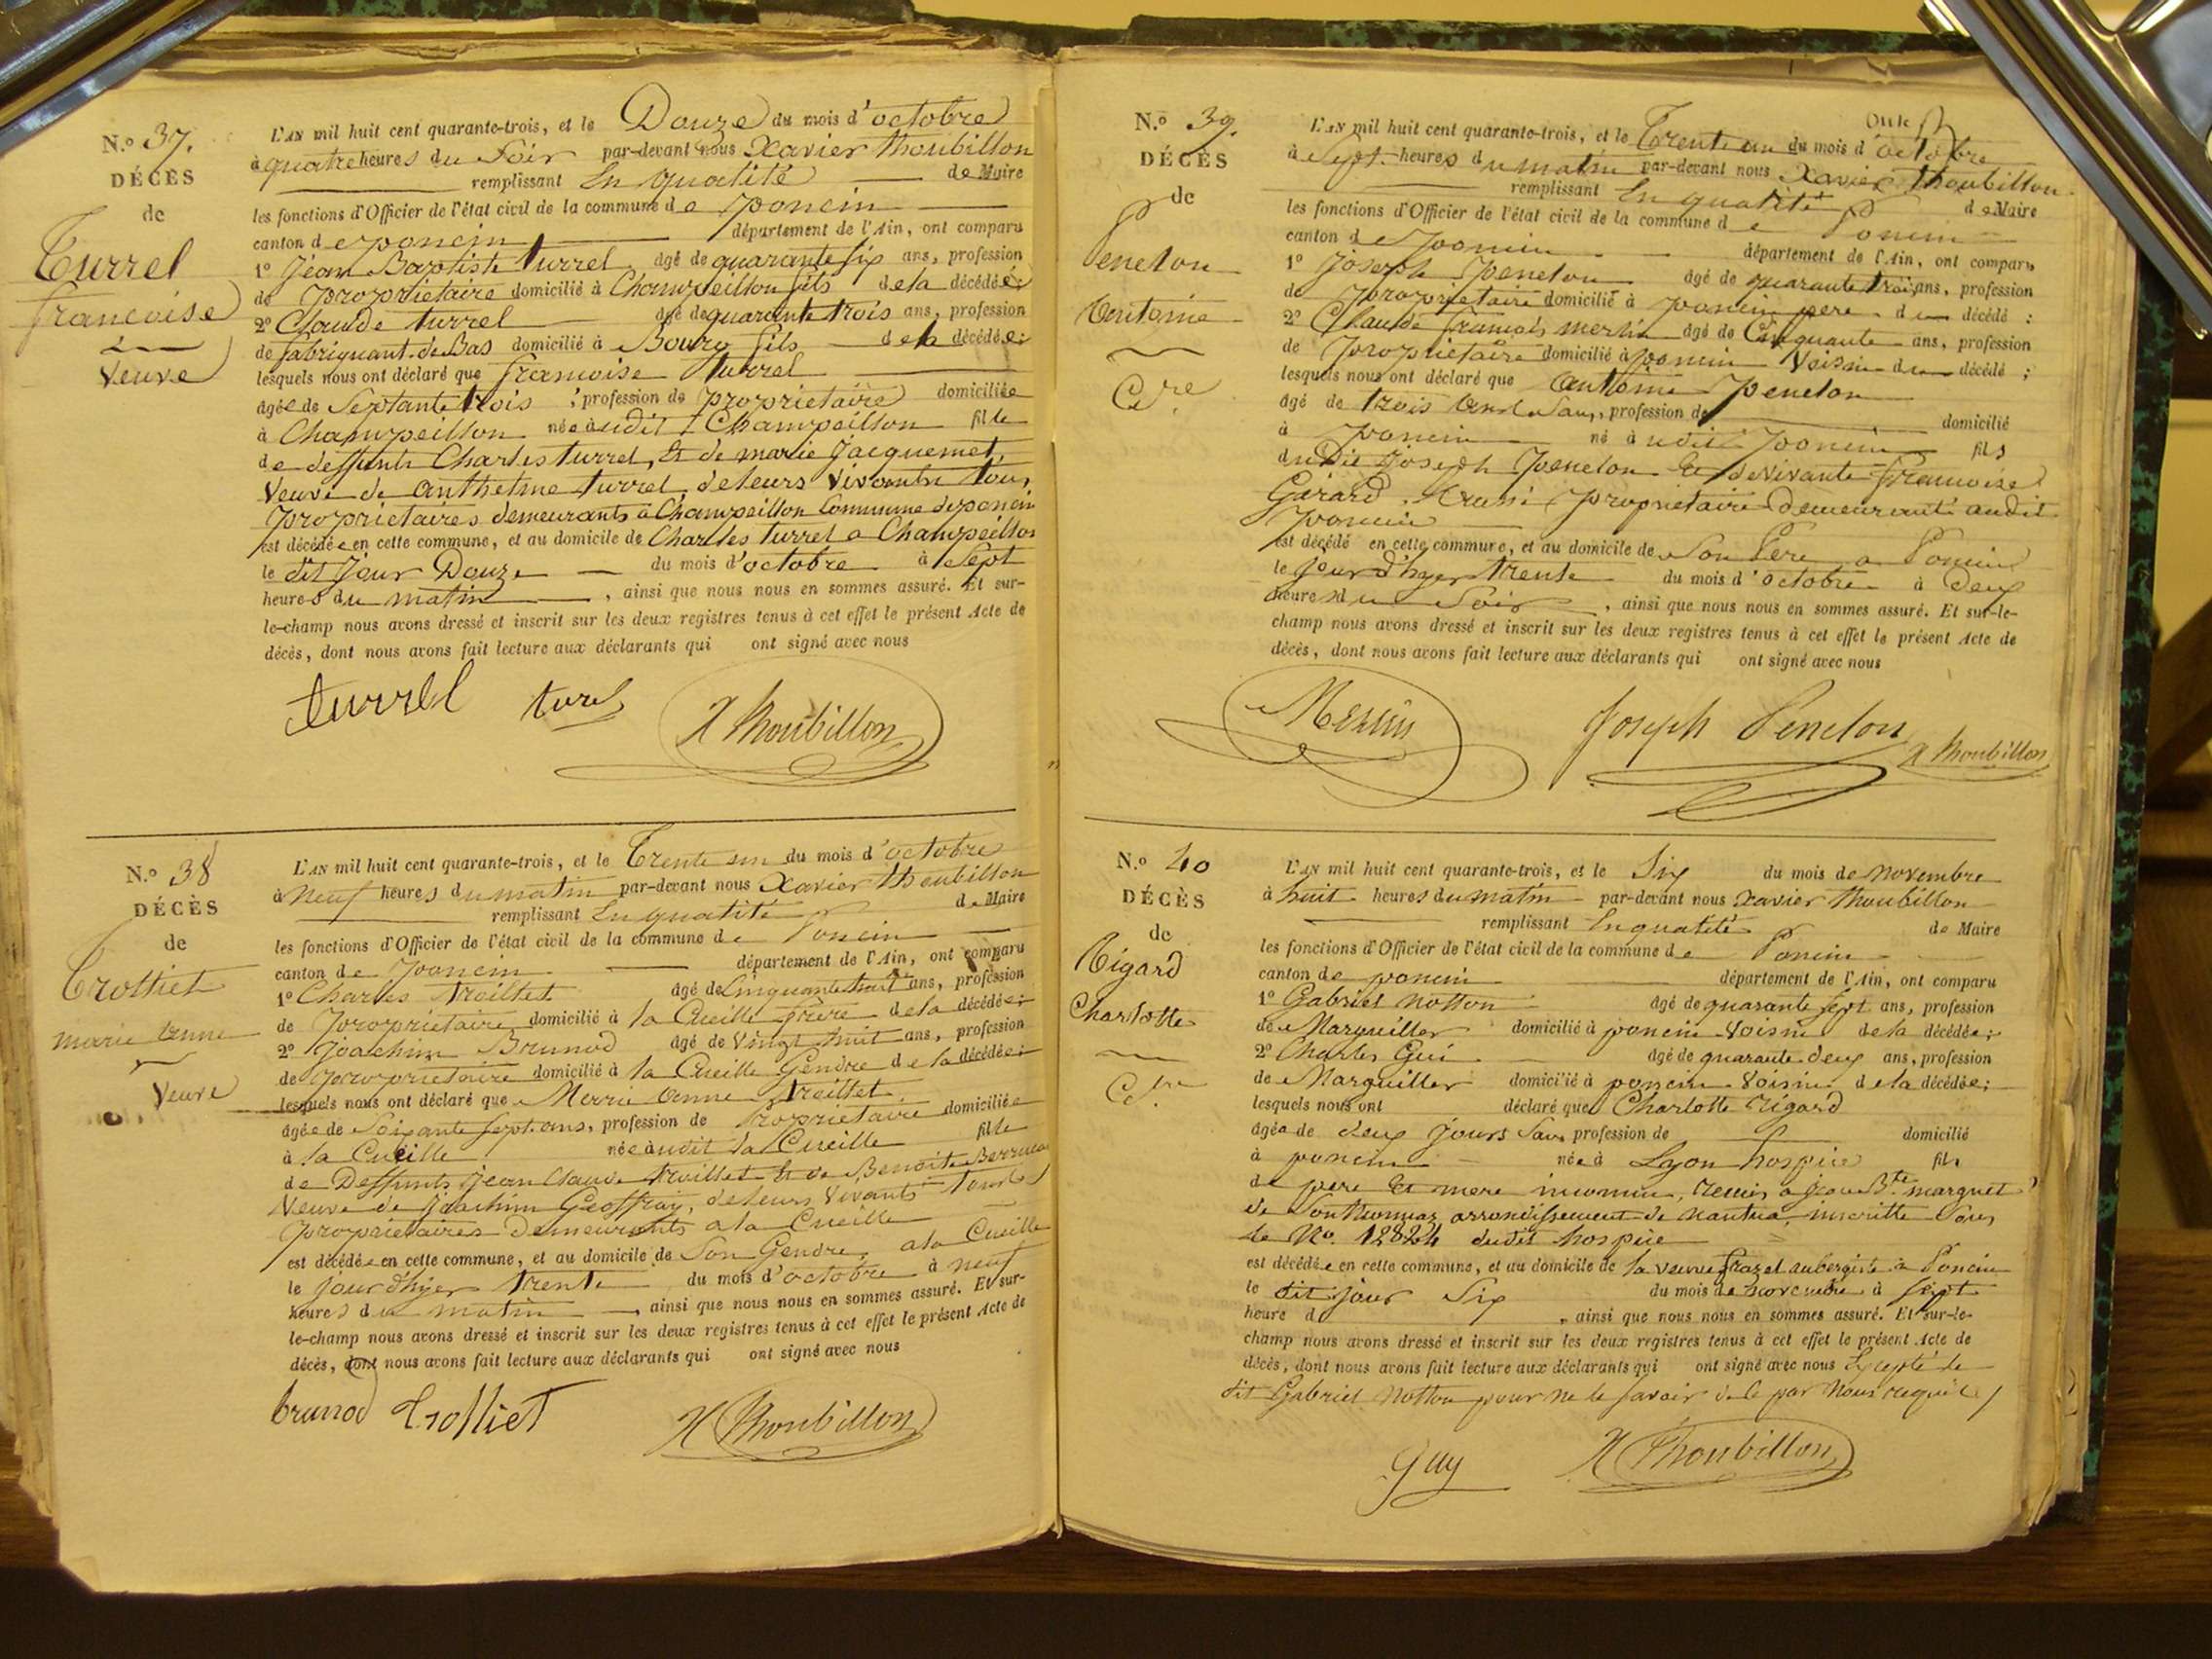 N.º 37.
DÉCÈS
de
Turrel
francoise
Veuve
L'AN mil huit cent quarante-trois, et le Douze du mois d'octobre
à quatre heures du Soir par-devant nous Xavier thoubillon
remplissant En qualité de Maire
les fonctions d'Officier de l'état civil de la commune de poncin
canton de poncin département de l'Ain, ont comparu
1º Jean Baptiste turrel âgé de quarante six ans, profession
de proprietaire domicilié à Champeillon fils de la décédée;
2º Claude turrel âgé de quarante trois ans, profession
de fabriquant de Bas domicilié à Bourg fils de la décédée;
lesquels nous ont déclaré que francoise turrel
âgée de Septante trois profession de proprietaire domiciliée
à Champeillon née audit Champeillon fille
de deffunts Charles turrel, Et de marie Jacquemet,
Veuve de anthelme turrel, de leurs Vivants tous
proprietaires demeurants à Champeillon Commune de poncin
est décédée en cette commune, et au domicile de Charles turrel a Champeillon
le dit Jour Douze du mois d'octobre à Sept
heures du matin, ainsi que nous nous en sommes assuré. Et sur-
le-champ nous avons dressé et inscrit sur les deux registres tenus à cet effet le présent Acte de
décès, dont nous avons fait lecture aux déclarants qui ont signé avec nous
turrel turel X Thoubillon
N.º 38
DÉCÈS
de
Trolliet
marie anne
Veuve
L'AN mil huit cent quarante-trois, et le Trente un du mois d'octobre
à Neuf heures du matin par-devant nous Xavier thoubillon
remplissant En qualité de Maire
les fonctions d'Officier de l'état civil de la commune de Poncin
canton de poncin département de l'Ain, ont comparu
1º Charles troillet âgé de Cinquante huit ans, profession
de proprietaire domicilié à la Cueille frère de la décédée;
2º Joachim Brunod âgé de Vingt huit ans, profession
de proprietaire domicilié à la Cueille Gendre de la décédée;
lesquels nous ont déclaré que Marie anne troillet
âgée de Soixante Sept ans, profession de Proprietaire domiciliée
à la Cueille née audit la Cueille fille
de Deffunts Jean Claude troillet Et de Benoite
Veuve de Joachim Geoffray, de leurs Vivants tous
proprietaires Demeurants a la Cueille
est décédée en cette commune, et au domicile de Son Gendre, a la Cueille
le Jour d'hyer trente du mois d'octobre à neuf
heures du matin, ainsi que nous nous en sommes assuré. Et sur-
le-champ nous avons dressé et inscrit sur les deux registres tenus à cet effet le présent Acte de
décès, dont nous avons fait lecture aux déclarants qui ont signé avec nous
brunod trolliet X Thoubillon
N.º 39.
DÉCÈS
de
Peneton
Antoine
Cre
L'AN mil huit cent quarante-trois, et le Trente un du mois d'octobre
à Sept heures du matin par-devant nous Xavier thoubillon
remplissant En qualité de Maire
les fonctions d'Officier de l'état civil de la commune de Poncin
canton de poncin département de l'Ain, ont comparu
1º Joseph Peneton âgé de quarante trois ans, profession
de proprietaire domicilié à poncin pere du décédé;
2º Claude francois merlin âgé de Cinquante ans, profession
de proprietaire domicilié à poncin Voisin du décédé;
lesquels nous ont déclaré que antoine peneton
âgé de trois ans, profession de domicilié
à poncin né audit poncin fils
du dit Joseph Peneton Et de vivante francoise
Gérard proprietaire demeurant audit
poncin
est décédé en cette commune, et au domicile de Son Pere a Poncin
le jour d'hyer trente du mois d'octobre à Deux
heures du Soir, ainsi que nous nous en sommes assuré. Et sur-le-
champ nous avons dressé et inscrit sur les deux registres tenus à cet effet le présent Acte de
décès, dont nous avons fait lecture aux déclarants qui ont signé avec nous
Merlin Joseph Peneton X Thoubillon
N.º 40
DÉCÈS
de
Rigard
Charlotte
C.re
L'AN mil huit cent quarante-trois, et le Six du mois de novembre
à huit heures du matin par-devant nous Xavier thoubillon
remplissant En qualité de Maire
les fonctions d'Officier de l'état civil de la commune de Poncin
canton de poncin département de l'Ain, ont comparu
1º Gabriel Notton âgé de quarante Sept ans, profession
de Marguiller domicilié à poncin Voisin de la décédée;
2º Charles Gui âgé de quarante deux ans, profession
de Marguiller domicilié à poncin Voisin de la décédée;
lesquels nous ont déclaré que Charlotte rigard
âgée de deux jours Sans profession de domicilié
à poncin née à Lyon hospice fil
de pere Et mere inconnu, remis a Jean B.te marquet
de arrondissement de nantua, inscritte Sous
le No. 12824 dudit hospice
est décédée en cette commune, et au domicile de la veuve frazel aubergiste à Poncin
le dit jour Six du mois de novembre à Sept
heure d, ainsi que nous nous en sommes assuré. Et sur-le-
champ nous avons dressé et inscrit sur les deux registres tenus à cet effet le présent Acte de
décès, dont nous avons fait lecture aux déclarants qui ont signé avec nous Excepté le
dit Gabriel Notton pour ne le Savoir de ce par Nous requis
Guy X Thoubillon